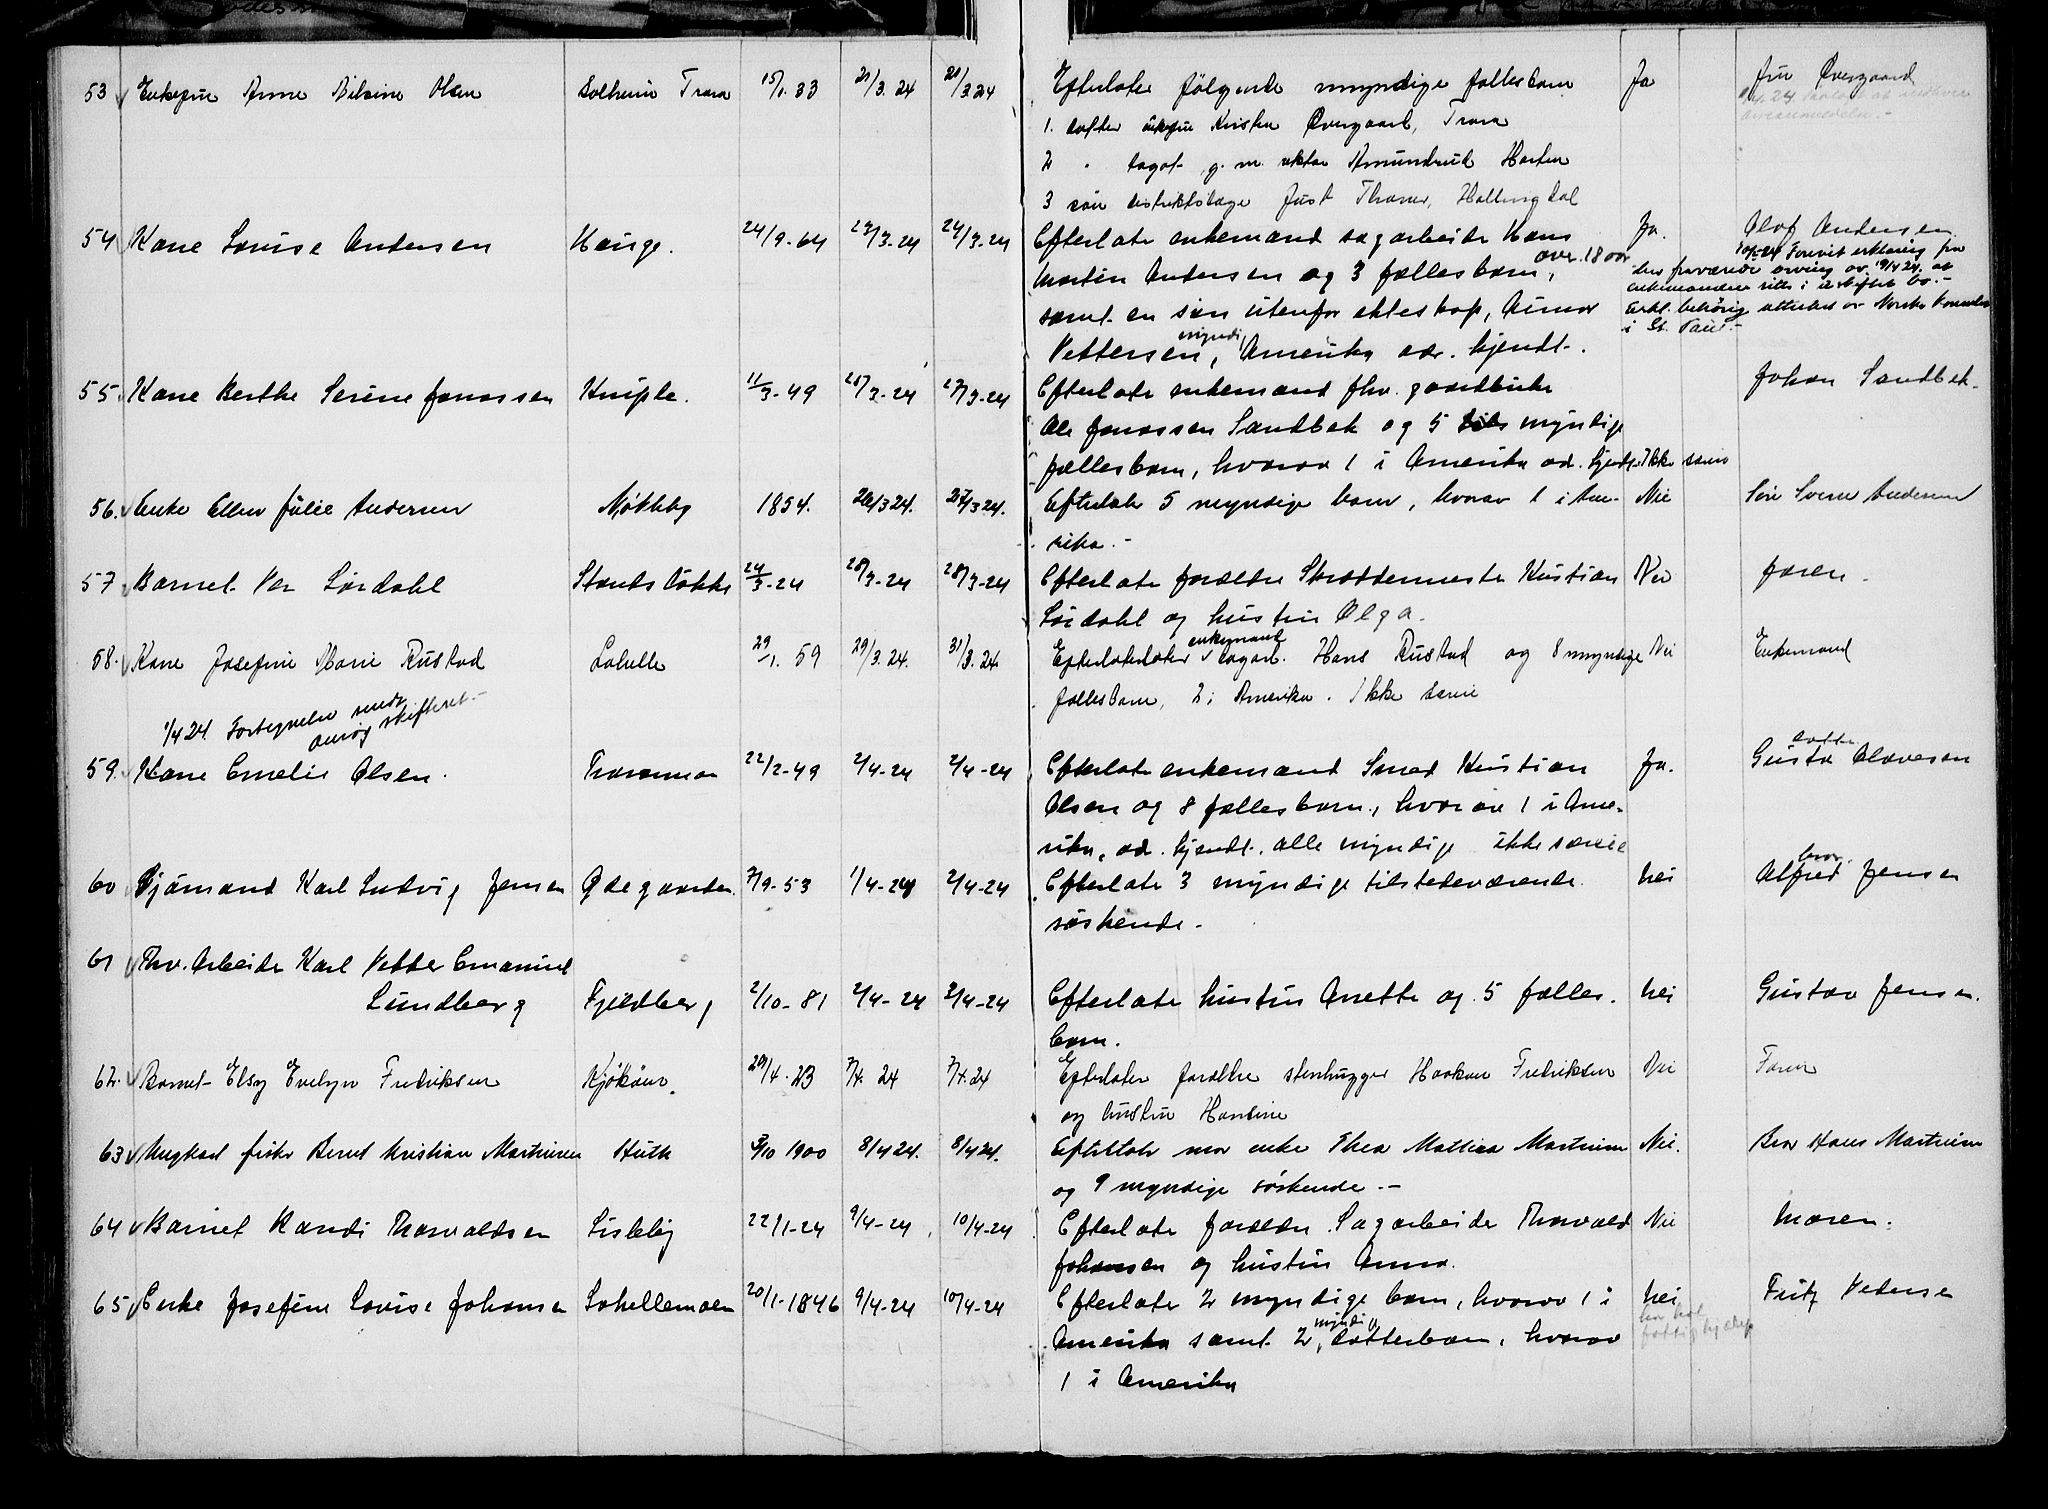 53 Enkefru Anne Olsen Solheim Trara 15/1. 33 21/3. 24 21/3 24 Efterlater følgende myndige fællesbarn Ja Fru Overgaard
1. datter enkefru Overgaard, Trara
2 " Dagot g. m. Amundrud Horten
3 søn distriktslæge Just Hallingdal
54 Kone Lovise Andersen Hauge. 24/9-64 24/3-24 24/3-24 Efterlate enkemand sagarbeide Hans Ja. Olof Andersen
Martin Andersen og 3 fællesbarn, over 18 aar
samt en søn utenfor ekteskap,
Pettersen, myndig, Amerika adr. kjendt.
Erkl. behørig attestert av Norske
i St. Paul.-
55 Kone Berthe Serine Jonassen Kniple. 11/3-49 27/3-24 Efterlate enkemand fhv. gaardbruke Johan Sandbek
Ole Jonassen Sandbek og 5 myndige
fællesbarn, hvorav 1 i Amerika ad. kjendt. Ikke særeie
56. Enke Ellen Julie Andersen Nøkleby 1854. 26/3 24. 27/3 24. Efterlater 5 myndige barn, hvorav 1 i Ame- Nei Søn Andersen
rika.-
57 Barnet Per Lørdahl 24/3-24 28/3-24 28/3-24 Efterlate forældre Skræddermester Kristian Nei faren.
Lørdahl og hustru Olga.
58. Kone Josefine Marie Rustad Lahelle 29/1. 59 29/3. 24. 31/3. 24 enkemand sagarb. Hans Rustad og 8 myndige Nei Enkemand
fællesbarn, 2 i Amerika. Ikke særeie
1/4 24. Fortegnelse sendt
skifteret.-
59. Kone Emelie Olsen. Traramoa 22/2-49 2/4-24 2/4-24 Efterlate enkemand Smed Kristian Ja. datter Olavesen
Olsen og 8 fællesbarn, hvorav 1 i Ame-
rika, ad. kjendt. alle myndige ikke særeie
60 Sjømand Karl Ludvig Jensen Ødegaarden. 7/9-53 1/4-24 2/4-24 Efterlate 3 myndige tilstedeværende nei bror Alfred Jensen
søskende.
61 Fhv. Arbeide Karl Petter Emanuel
Lundberg Fjeldberg 2/10-81 2/4-24 2/4-24 Efterlate hustru Anette og 5 fælles- nei Gustav Jensen.
barn.
62. Barnet Elsy Evelyn Fredriksen Kjøkøen. 29/4. 23 7/4. 24 7/4. 24 Efterlater forældre stenhugger Haakon Fredriksen Nei Faren
og hustru Hansine
63 Ungkarl fisker Bernt Kristian Martinsen Huth 1900 8/4 24. 8/4 24. Efterlater mor enke Thea Mathea Martinsen Nei. Bror Hans Martinsen
og 9 myndige søskende.-
64 Barnet Randi Thorvaldsen Lisleby 22/1-24 9/4-24 10/4-24 Efterlate forældre Sagarbeide Thorvald Nei moren.
Johansen og hustru Anna.
65 Enke Josefine Lovise Johansen Lahellemoen 20/1-1846 9/4-24 10/4-24 Efterlate 2 myndige barn, hvorav 1 i nei Fritz Petersen
Amerika samt 2 myndig datterbarn, hvorav
1 i Amerika